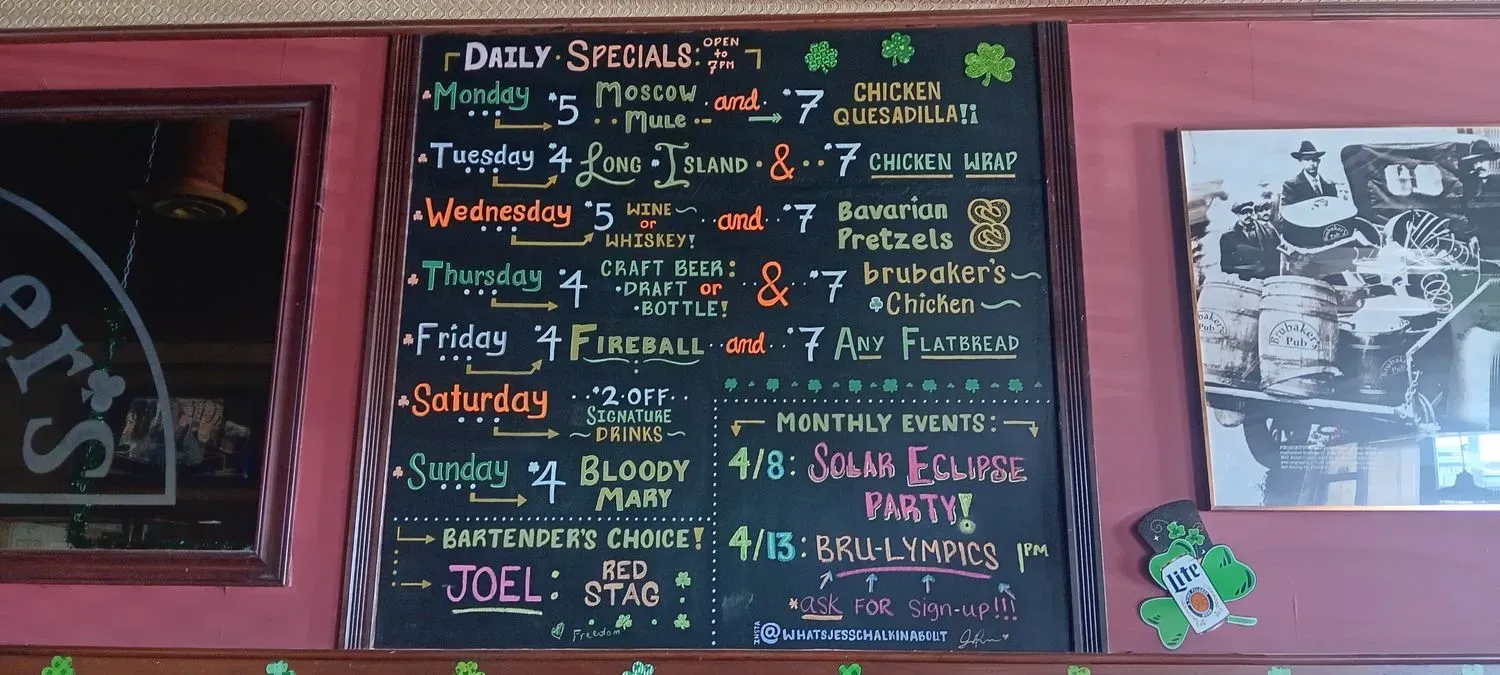 DAILY · SPECIALS: OPEN to 7PM
Monday $5 MOSCOW MULE and $7 CHICKEN QUESADILLA!¡
Tuesday $4 LONG ISLAND & $7 CHICKEN WRAP
Wednesday $5 WINE or WHISKEY! and $7 Bavarian Pretzels
Thursday $4 CRAFT BEER: DRAFT or BOTTLE! & $7 brubaker's Chicken
Friday $4 FIREBALL and $7 ANY FLATBREAD
Saturday $2 OFF SIGNATURE DRINKS
Sunday $4 BLOODY MARY
BARTENDER'S CHOICE!
JOEL: RED STAG
Freedom
MONTHLY EVENTS:
4/8: SOLAR ECLIPSE PARTY!
4/13: BRU-LYMPICS 1PM
*ask FOR sign-up!!!
INSTA @WHATSJESSCHALKINABOUT
er's
Brubaker's Pub
Lite